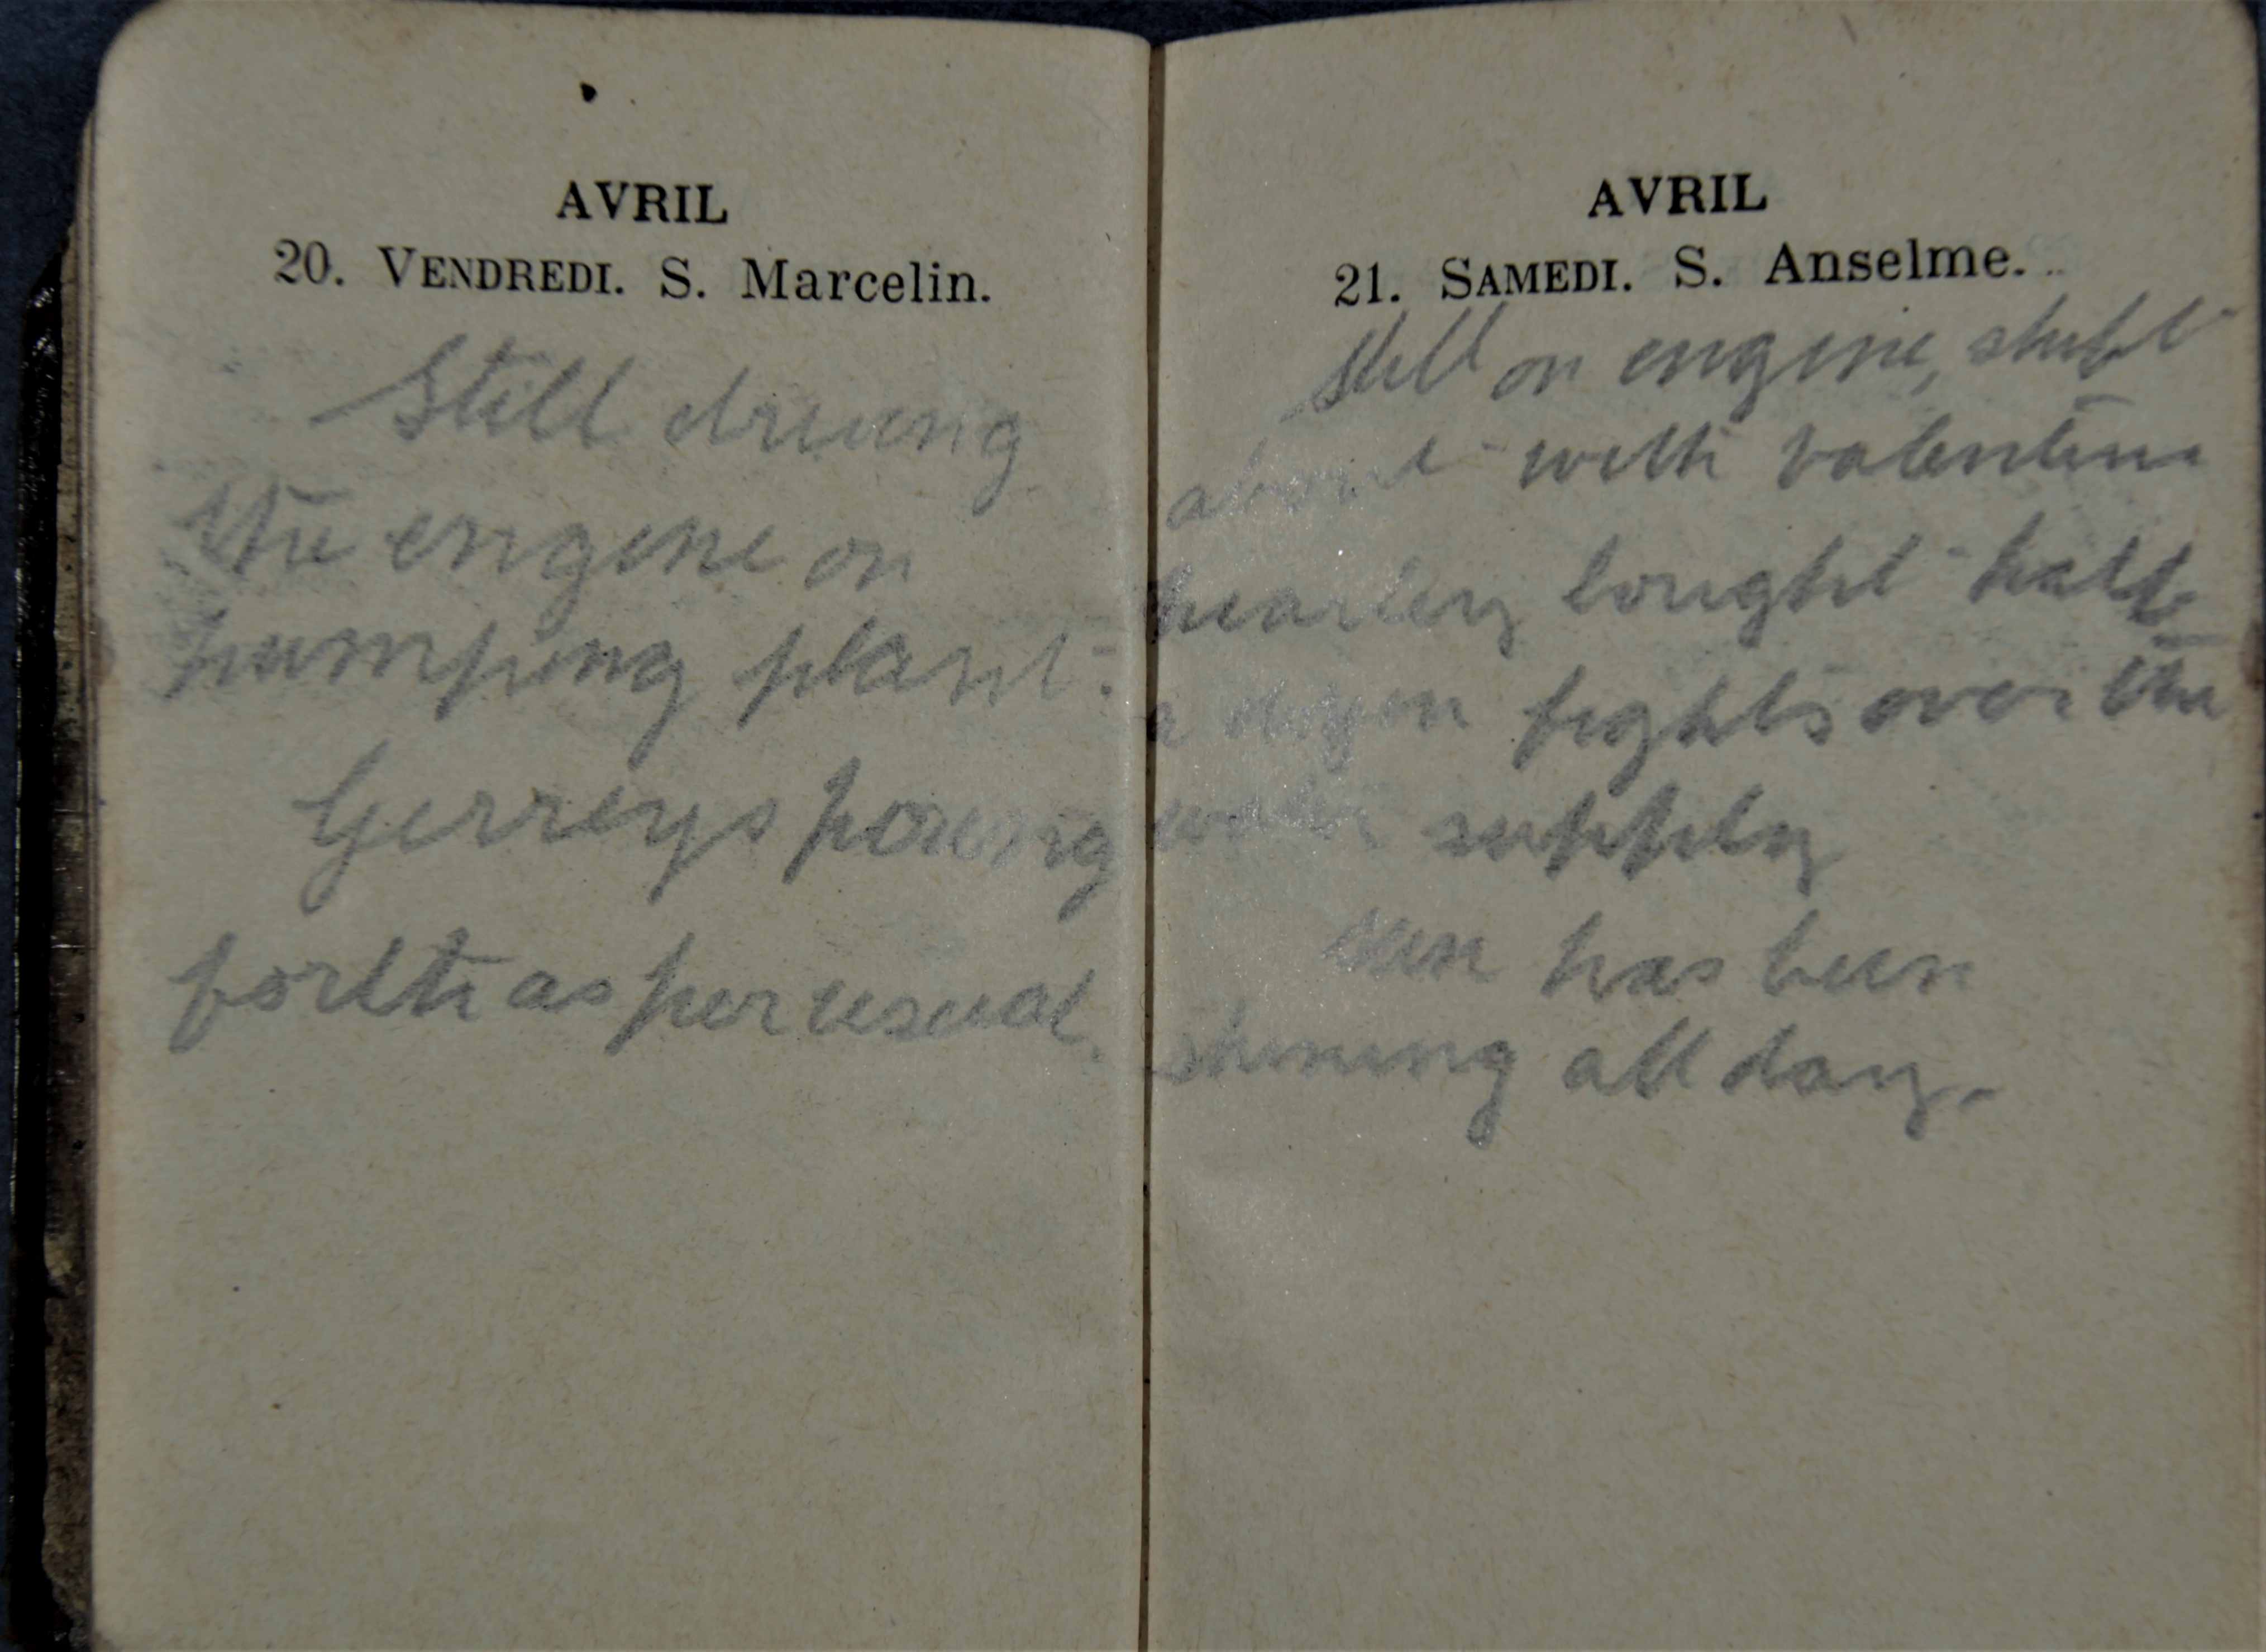 AVRIL
20. VENDREDI. S. Marcelin.
Still driving
the engine on
pumping plant.
Gerreys poring
forth as per usual.
AVRIL
21. SAMEDI. S. Anselme.
Still on engine, shift
about with Valentine
nearley fought half
a dozen fights over the
water supply
sun has been
shining all day.